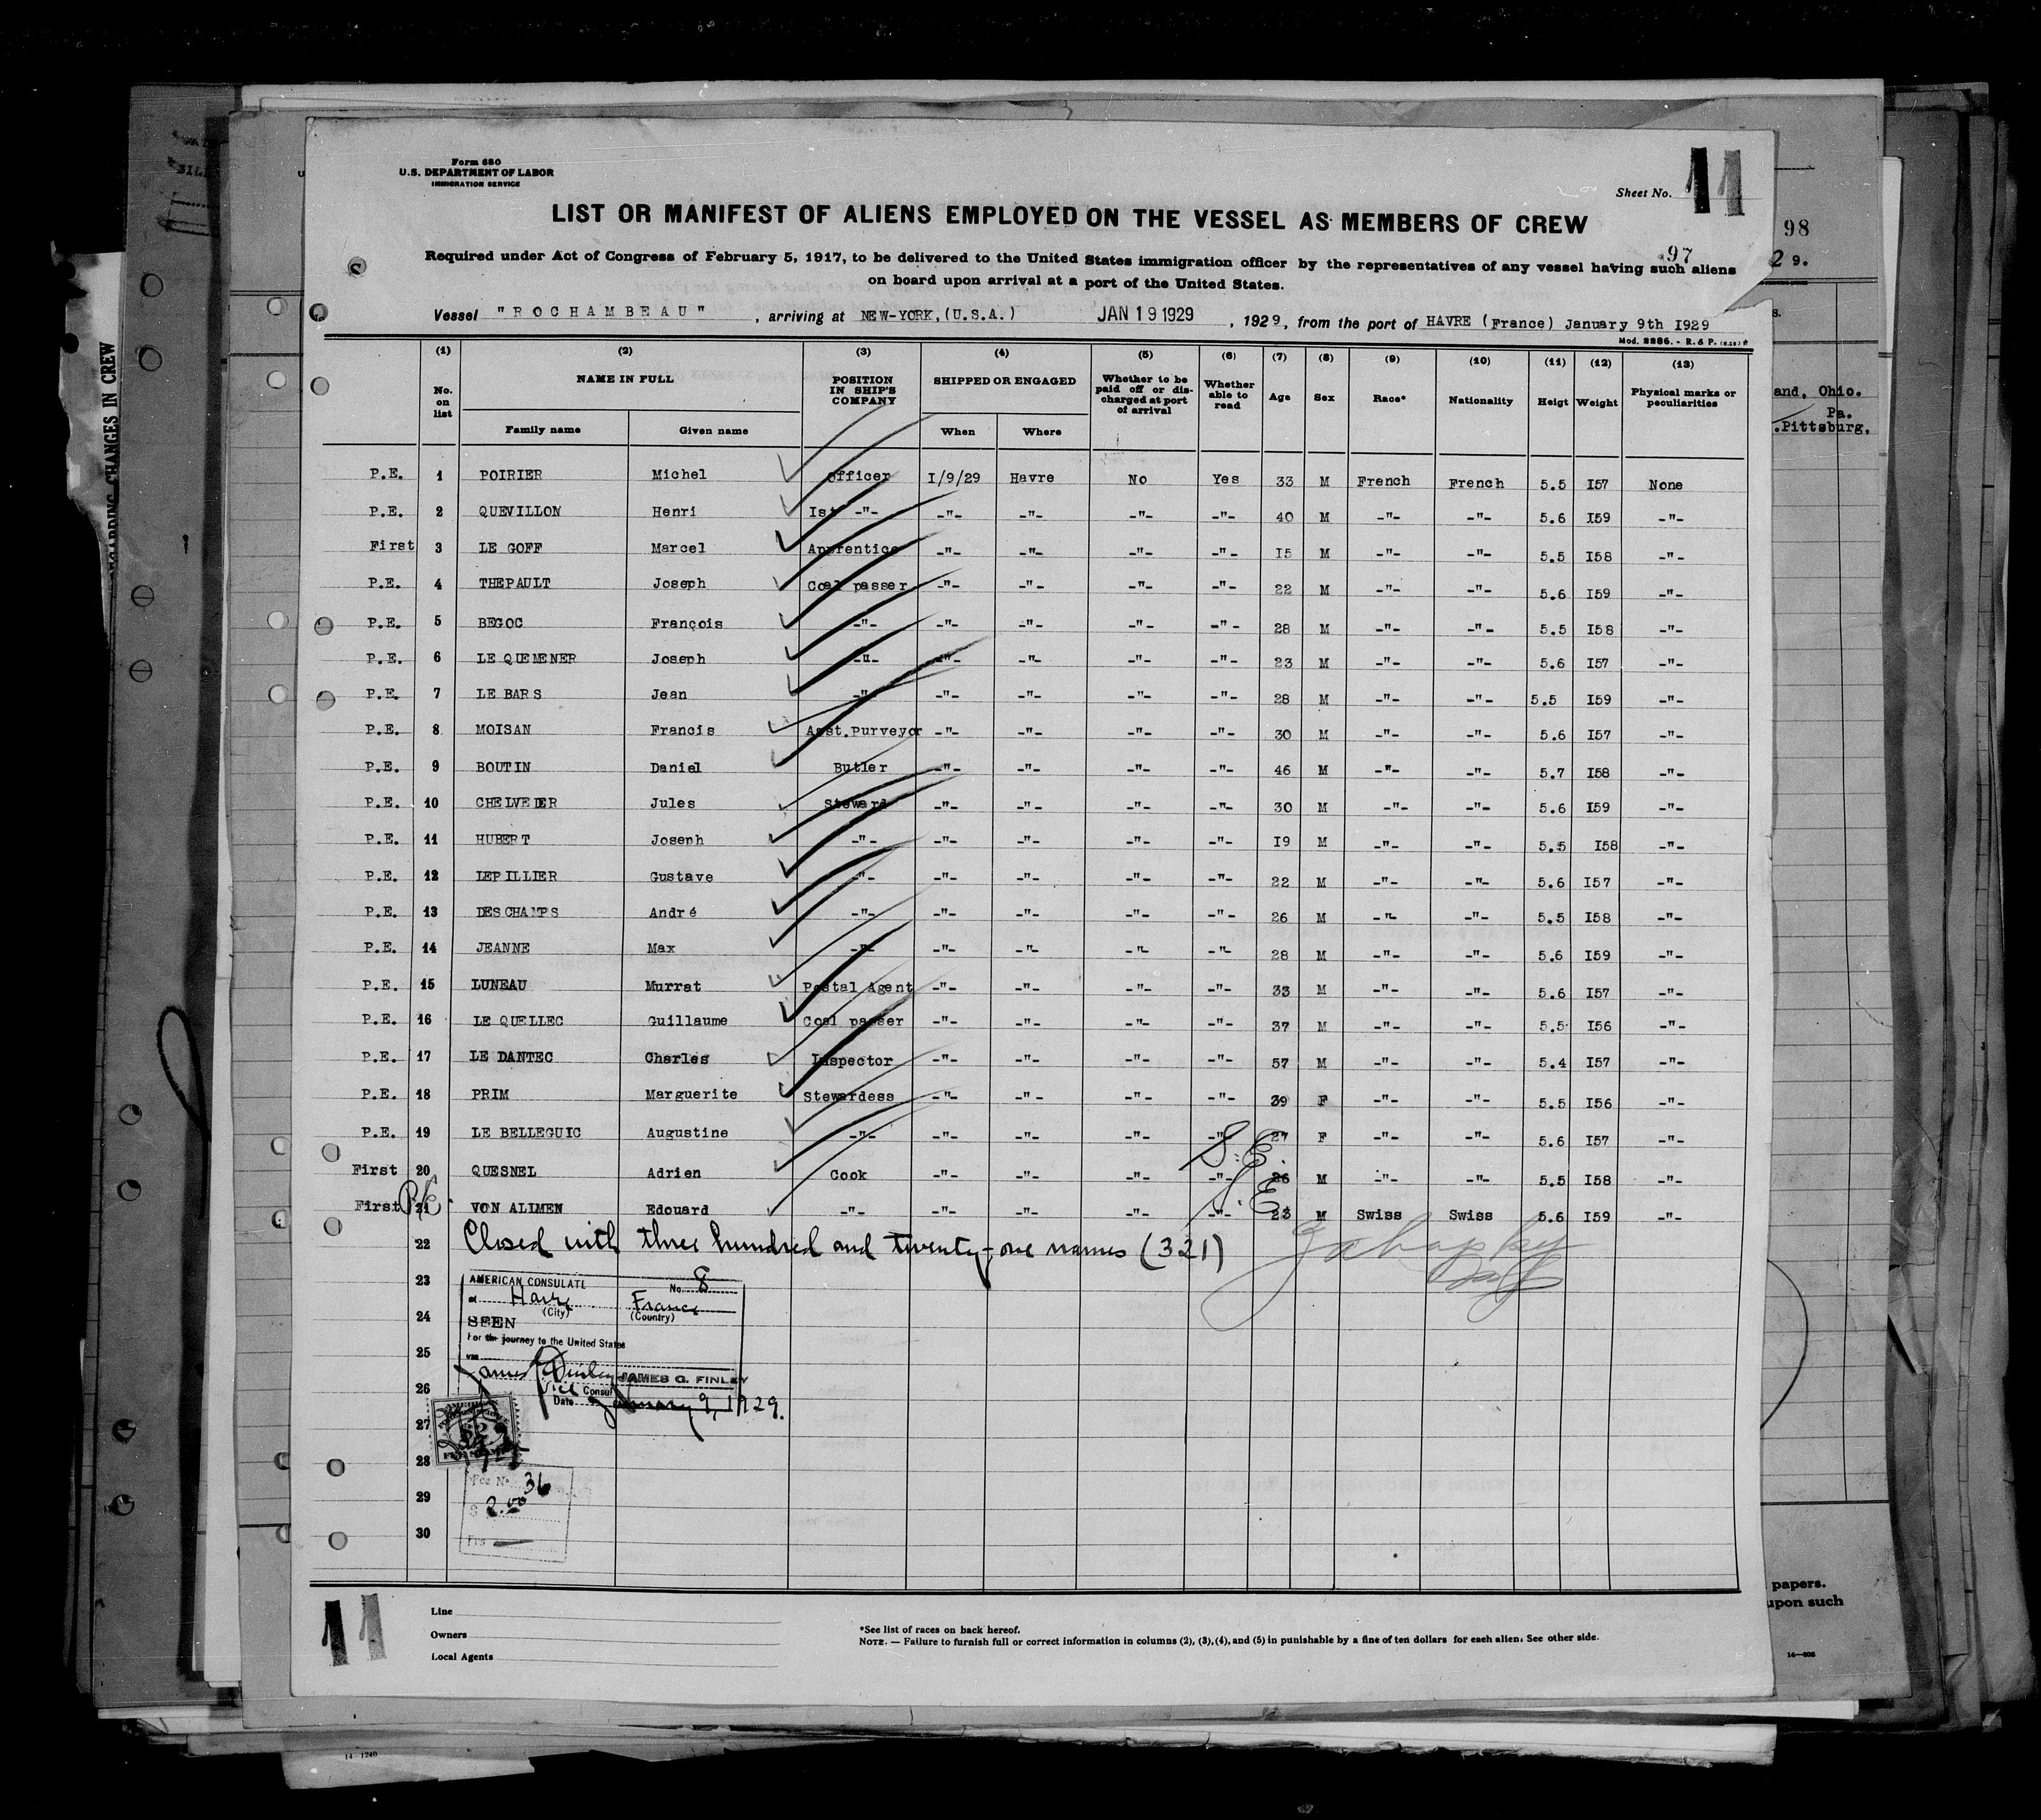 Form 680
U.S. DEPARTMENT OF LABOR
IMMIGRATION SERVICE
Sheet No. 11
LIST OR MANIFEST OF ALIENS EMPLOYED ON THE VESSEL AS MEMBERS OF CREW
97
98
Required under Act of Congress of February 5, 1917, to be delivered to the United States immigration officer by the representatives of any vessel having such aliens
on board upon arrival at a port of the United States.
29.
Vessel "ROCHAMBEAU", arriving at NEW-YORK,(U.S.A.) JAN 19 1929, 1929, from the port of HAVRE (France) January 9th I929
Mod. 2286. - R. & P.
(1) (2) (3) (4) (5) (6) (7) (8) (9) (10) (11) (12) (13)
No. on list NAME IN FULL POSITION IN SHIP'S COMPANY SHIPPED OR ENGAGED Whether to be paid off or discharged at port of arrival Whether able to read Age Sex Race* Nationality Heigt Weight Physical marks or peculiarities
Family name Given name When Where
and, Ohio.
Pa.
.Pittsburg.
REGARDING CHANGES IN CREW
P.E. 1 POIRIER Michel Officer I/9/29 Havre No Yes 33 M French French 5.5 I57 None
P.E. 2 QUEVILLON Henri Ist -"- -"- -"- -"- -"- 40 M -"- -"- 5.6 I59 -"-
First 3 LE GOFF Marcel Apprentice -"- -"- -"- -"- I5 M -"- -"- 5.5 I58 -"-
P.E. 4 THEPAULT Joseph Coal passer -"- -"- -"- -"- 22 M -"- -"- 5.6 I59 -"-
P.E. 5 BEGOC François -"- -"- -"- -"- -"- 28 M -"- -"- 5.5 I58 -"-
P.E. 6 LE QUEMENER Joseph -"- -"- -"- -"- -"- 23 M -"- -"- 5.6 I57 -"-
P.E. 7 LE BARS Jean -"- -"- -"- -"- -"- 28 M -"- -"- 5.5 I59 -"-
P.E. 8 MOISAN Francis Asst.Purveyor -"- -"- -"- -"- 30 M -"- -"- 5.6 I57 -"-
P.E. 9 BOUTIN Daniel Butler -"- -"- -"- -"- 46 M -"- -"- 5.7 I58 -"-
P.E. 10 CHELVEDER Jules Steward -"- -"- -"- -"- 30 M -"- -"- 5.6 I59 -"-
P.E. 11 HUBERT Joseph -"- -"- -"- -"- -"- I9 M -"- -"- 5.5 I58 -"-
P.E. 12 LEPILLIER Gustave -"- -"- -"- -"- -"- 22 M -"- -"- 5.6 I57 -"-
P.E. 13 DESCHAMPS André -"- -"- -"- -"- -"- 26 M -"- -"- 5.5 I58 -"-
P.E. 14 JEANNE Max -"- -"- -"- -"- -"- 28 M -"- -"- 5.6 I59 -"-
P.E. 15 LUNEAU Murrat Postal Agent -"- -"- -"- -"- 33 M -"- -"- 5.6 I57 -"-
P.E. 16 LE QUELLEC Guillaume Coal passer -"- -"- -"- -"- 37 M -"- -"- 5.5 I56 -"-
P.E. 17 LE DANTEC Charles Inspector -"- -"- -"- -"- 57 M -"- -"- 5.4 I57 -"-
P.E. 18 PRIM Marguerite Stewardess -"- -"- -"- -"- 39 F -"- -"- 5.5 I56 -"-
P.E. 19 LE BELLEGUIC Augustine -"- -"- -"- -"- -"- 27 F -"- -"- 5.6 I57 -"-
S.E.
First 20 QUESNEL Adrien Cook -"- -"- -"- -"- 26 M -"- -"- 5.5 I58 -"-
S.E.
First P.E. 21 VON ALIMEN Edouard -"- -"- -"- -"- -"- 23 M Swiss Swiss 5.6 I59 -"-
22 Closed with three hundred and twenty-one names (321)
23 AMERICAN CONSULATE No. 8
at Havre France
(City) (Country)
24 SEEN
For the journey to the United States
25 via
James G Finley JAMES G. FINLEY
26 Vice Consul
Date January 9, 1929.
27
28
Fee No 36
29 $ 2.00
30 Frs
11
Line
Owners
Local Agents
*See list of races on back hereof.
NOTE. — Failure to furnish full or correct information in columns (2), (3), (4), and (5) in punishable by a fine of ten dollars for each alien. See other side.
papers.
upon such
14-1240